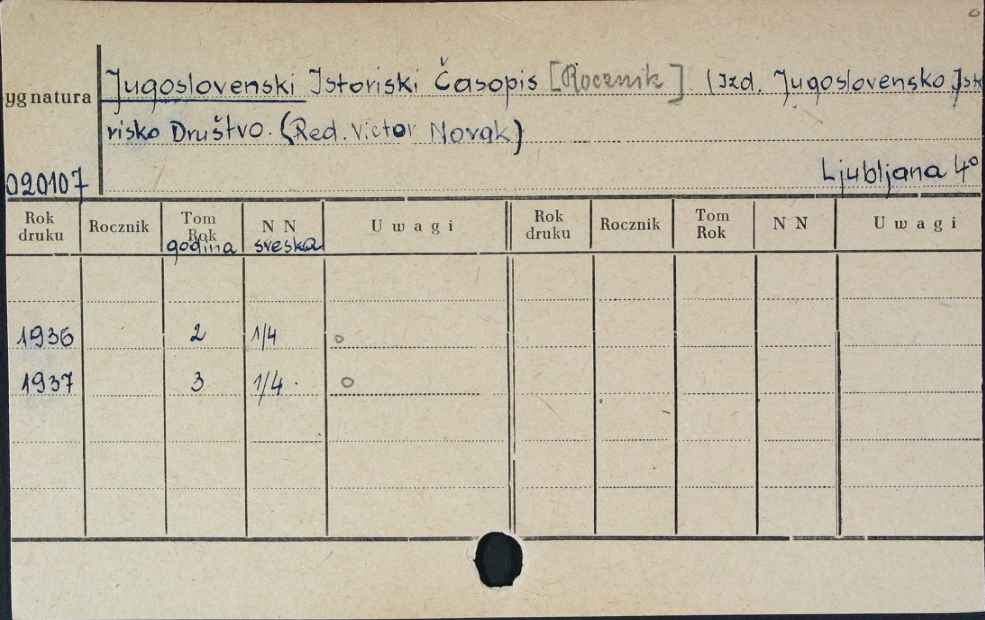 Jugoslovenski Istoriski Časopis [Rocznik]. (Izd. Jugoslovensko Isto
ygnatura
risko Društvo. (Red. Victor Novak)
020107
Ljubljana 4°
Rok druku Rocznik Tom Rok N N Uwagi Rok druku Rocznik Tom Rok N N Uwagi
godina sveska
1936 2 1/4 o
1937 3 1/4 . o